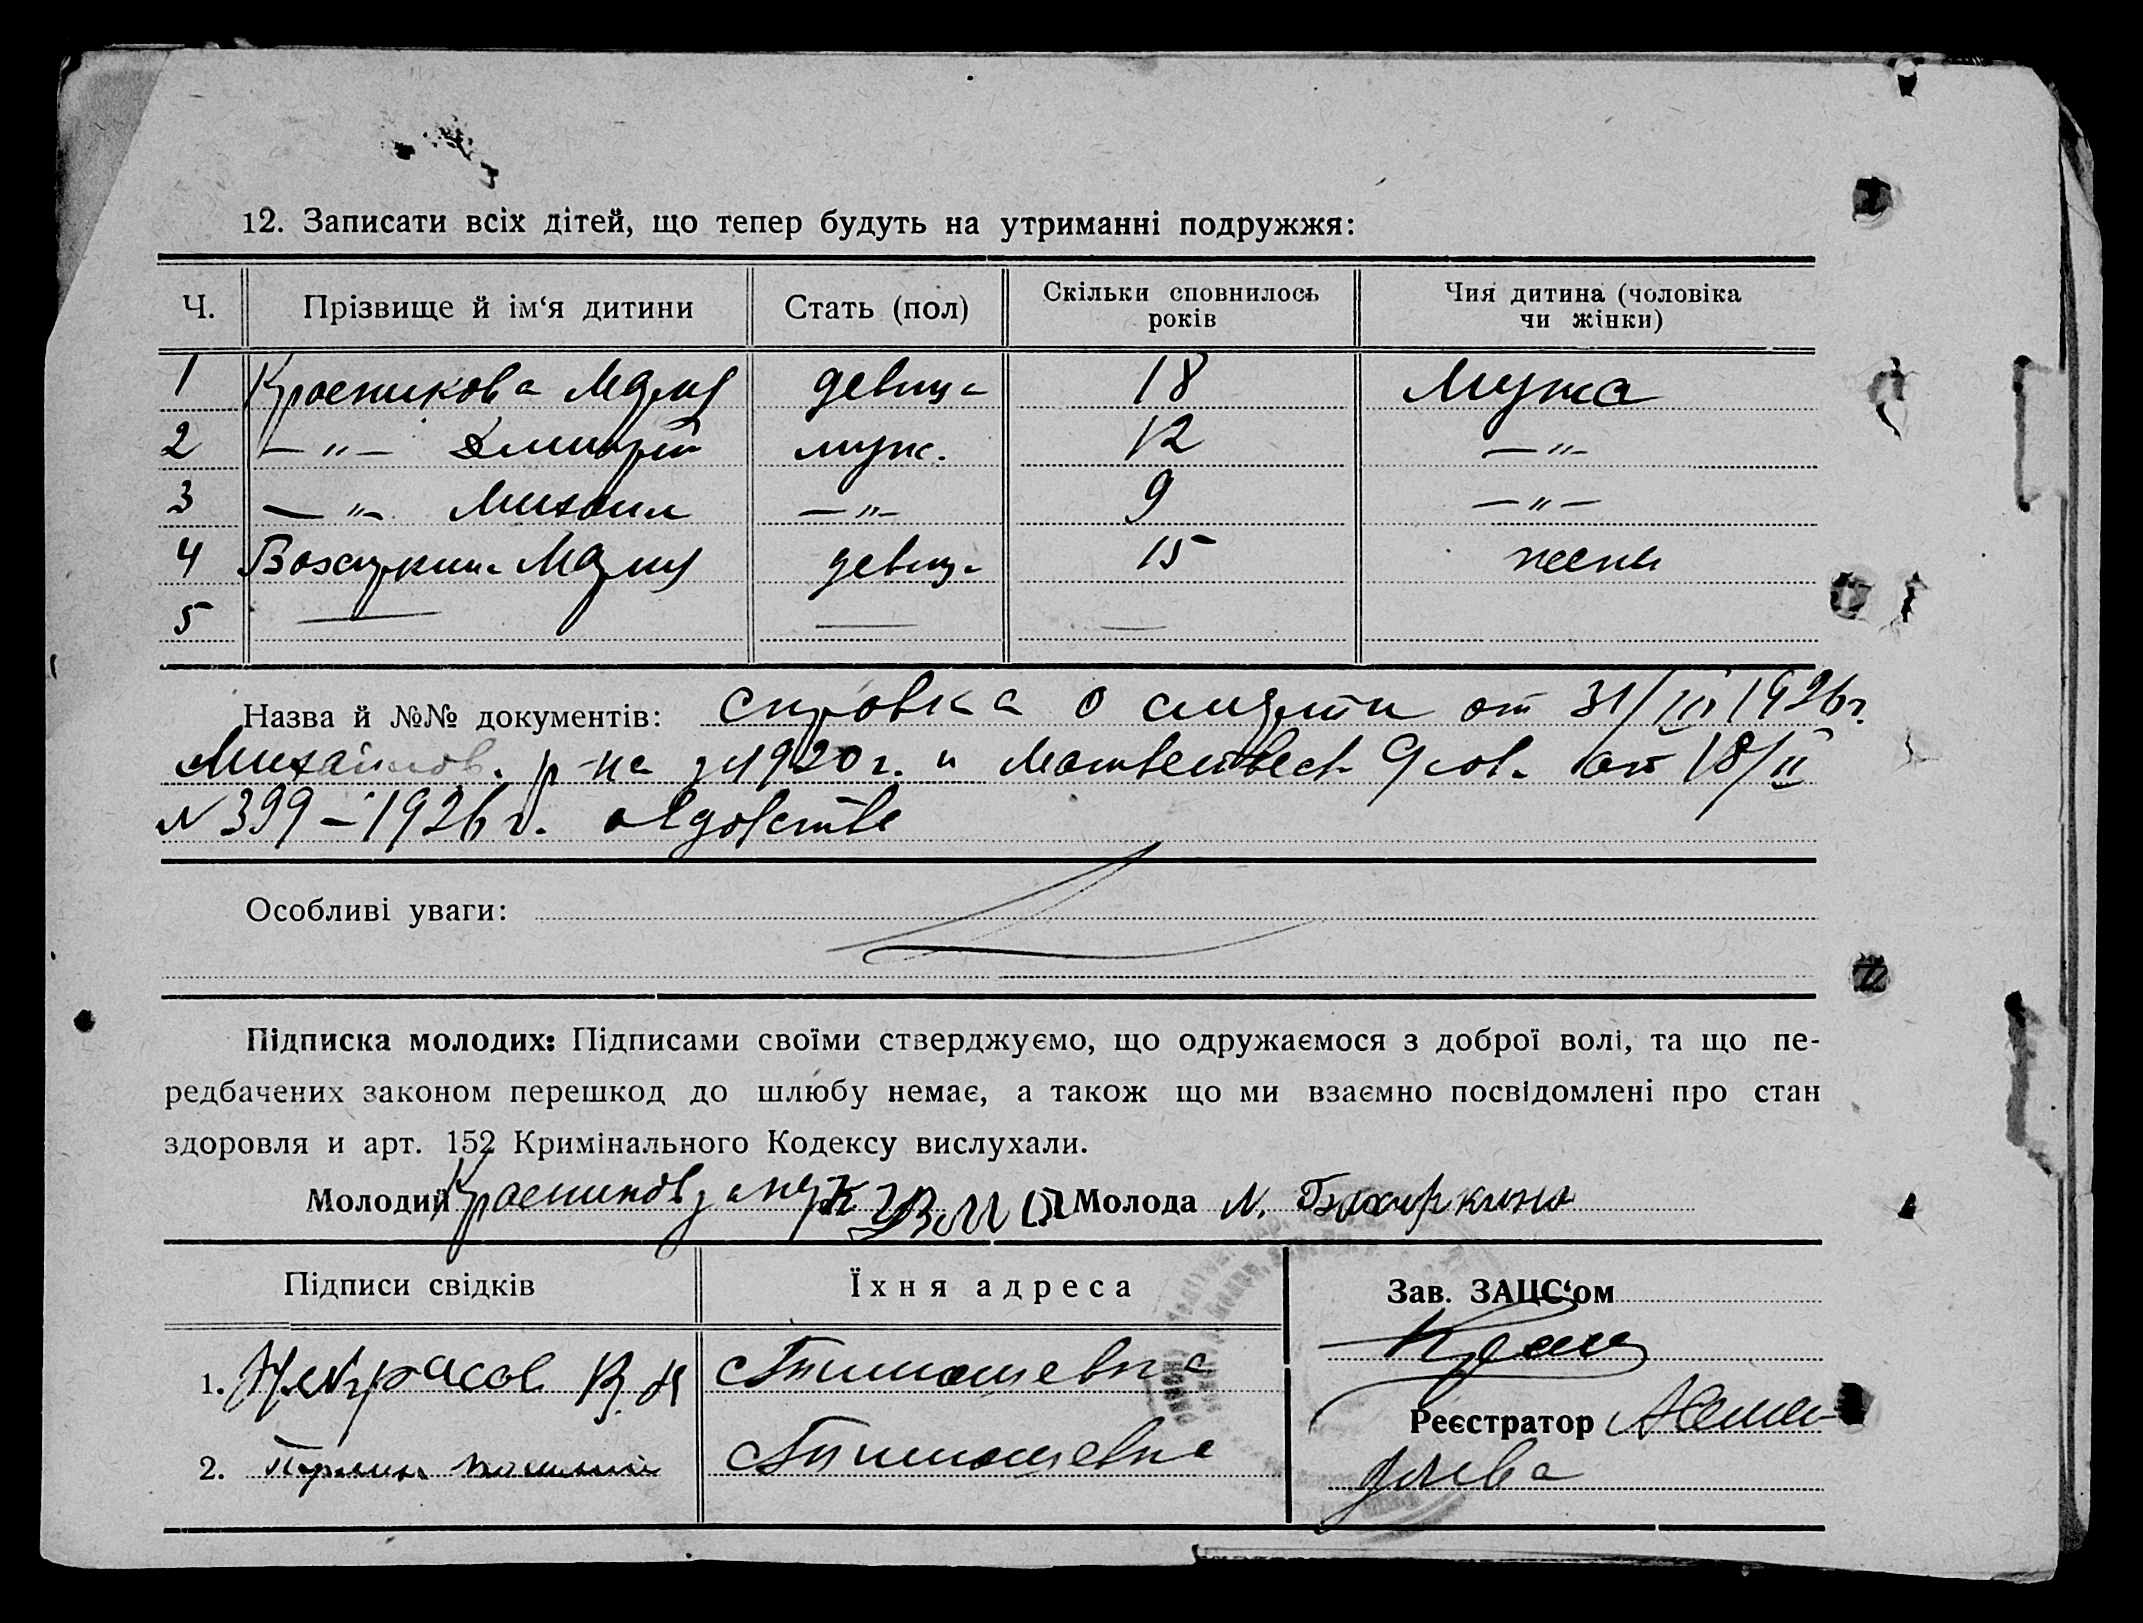 12. Записати всіх дітей, що тепер будуть на утриманні подружжя:
Ч. Прізвище й ім‘я дитини Стать (пол) Скільки сповнилось років Чия дитина (чоловіка чи жінки)
1 Красникова Мария девица 18 Мужа
2 — „ — Дмитрий муж. 12 — „ —
3 — „ — Михаил — „ — 9 — „ —
4 Мария девица 15 жены
5
Назва й №№ документів: справка о смерти от 31/III 1926г.
р-на 1920 г. и от 18/II
N 399 – 1926 г. о вдовстве
Особливі уваги:
Підписка молодих: Підписами своїми стверджуємо, що одружаємося з доброї волі, та що пе-
редбачених законом перешкод до шлюбу немає, а також що ми взаємно посвідомлені про стан
здоровля и арт. 152 Кримінального Кодексу вислухали.
Молодий Красников Молода М. Бахиркина
Підписи свідків Їхня адреса Зав. ЗАЦС‘ом
1. Некрасов В. Тимошевка
Реєстратор
2. Тимошевка